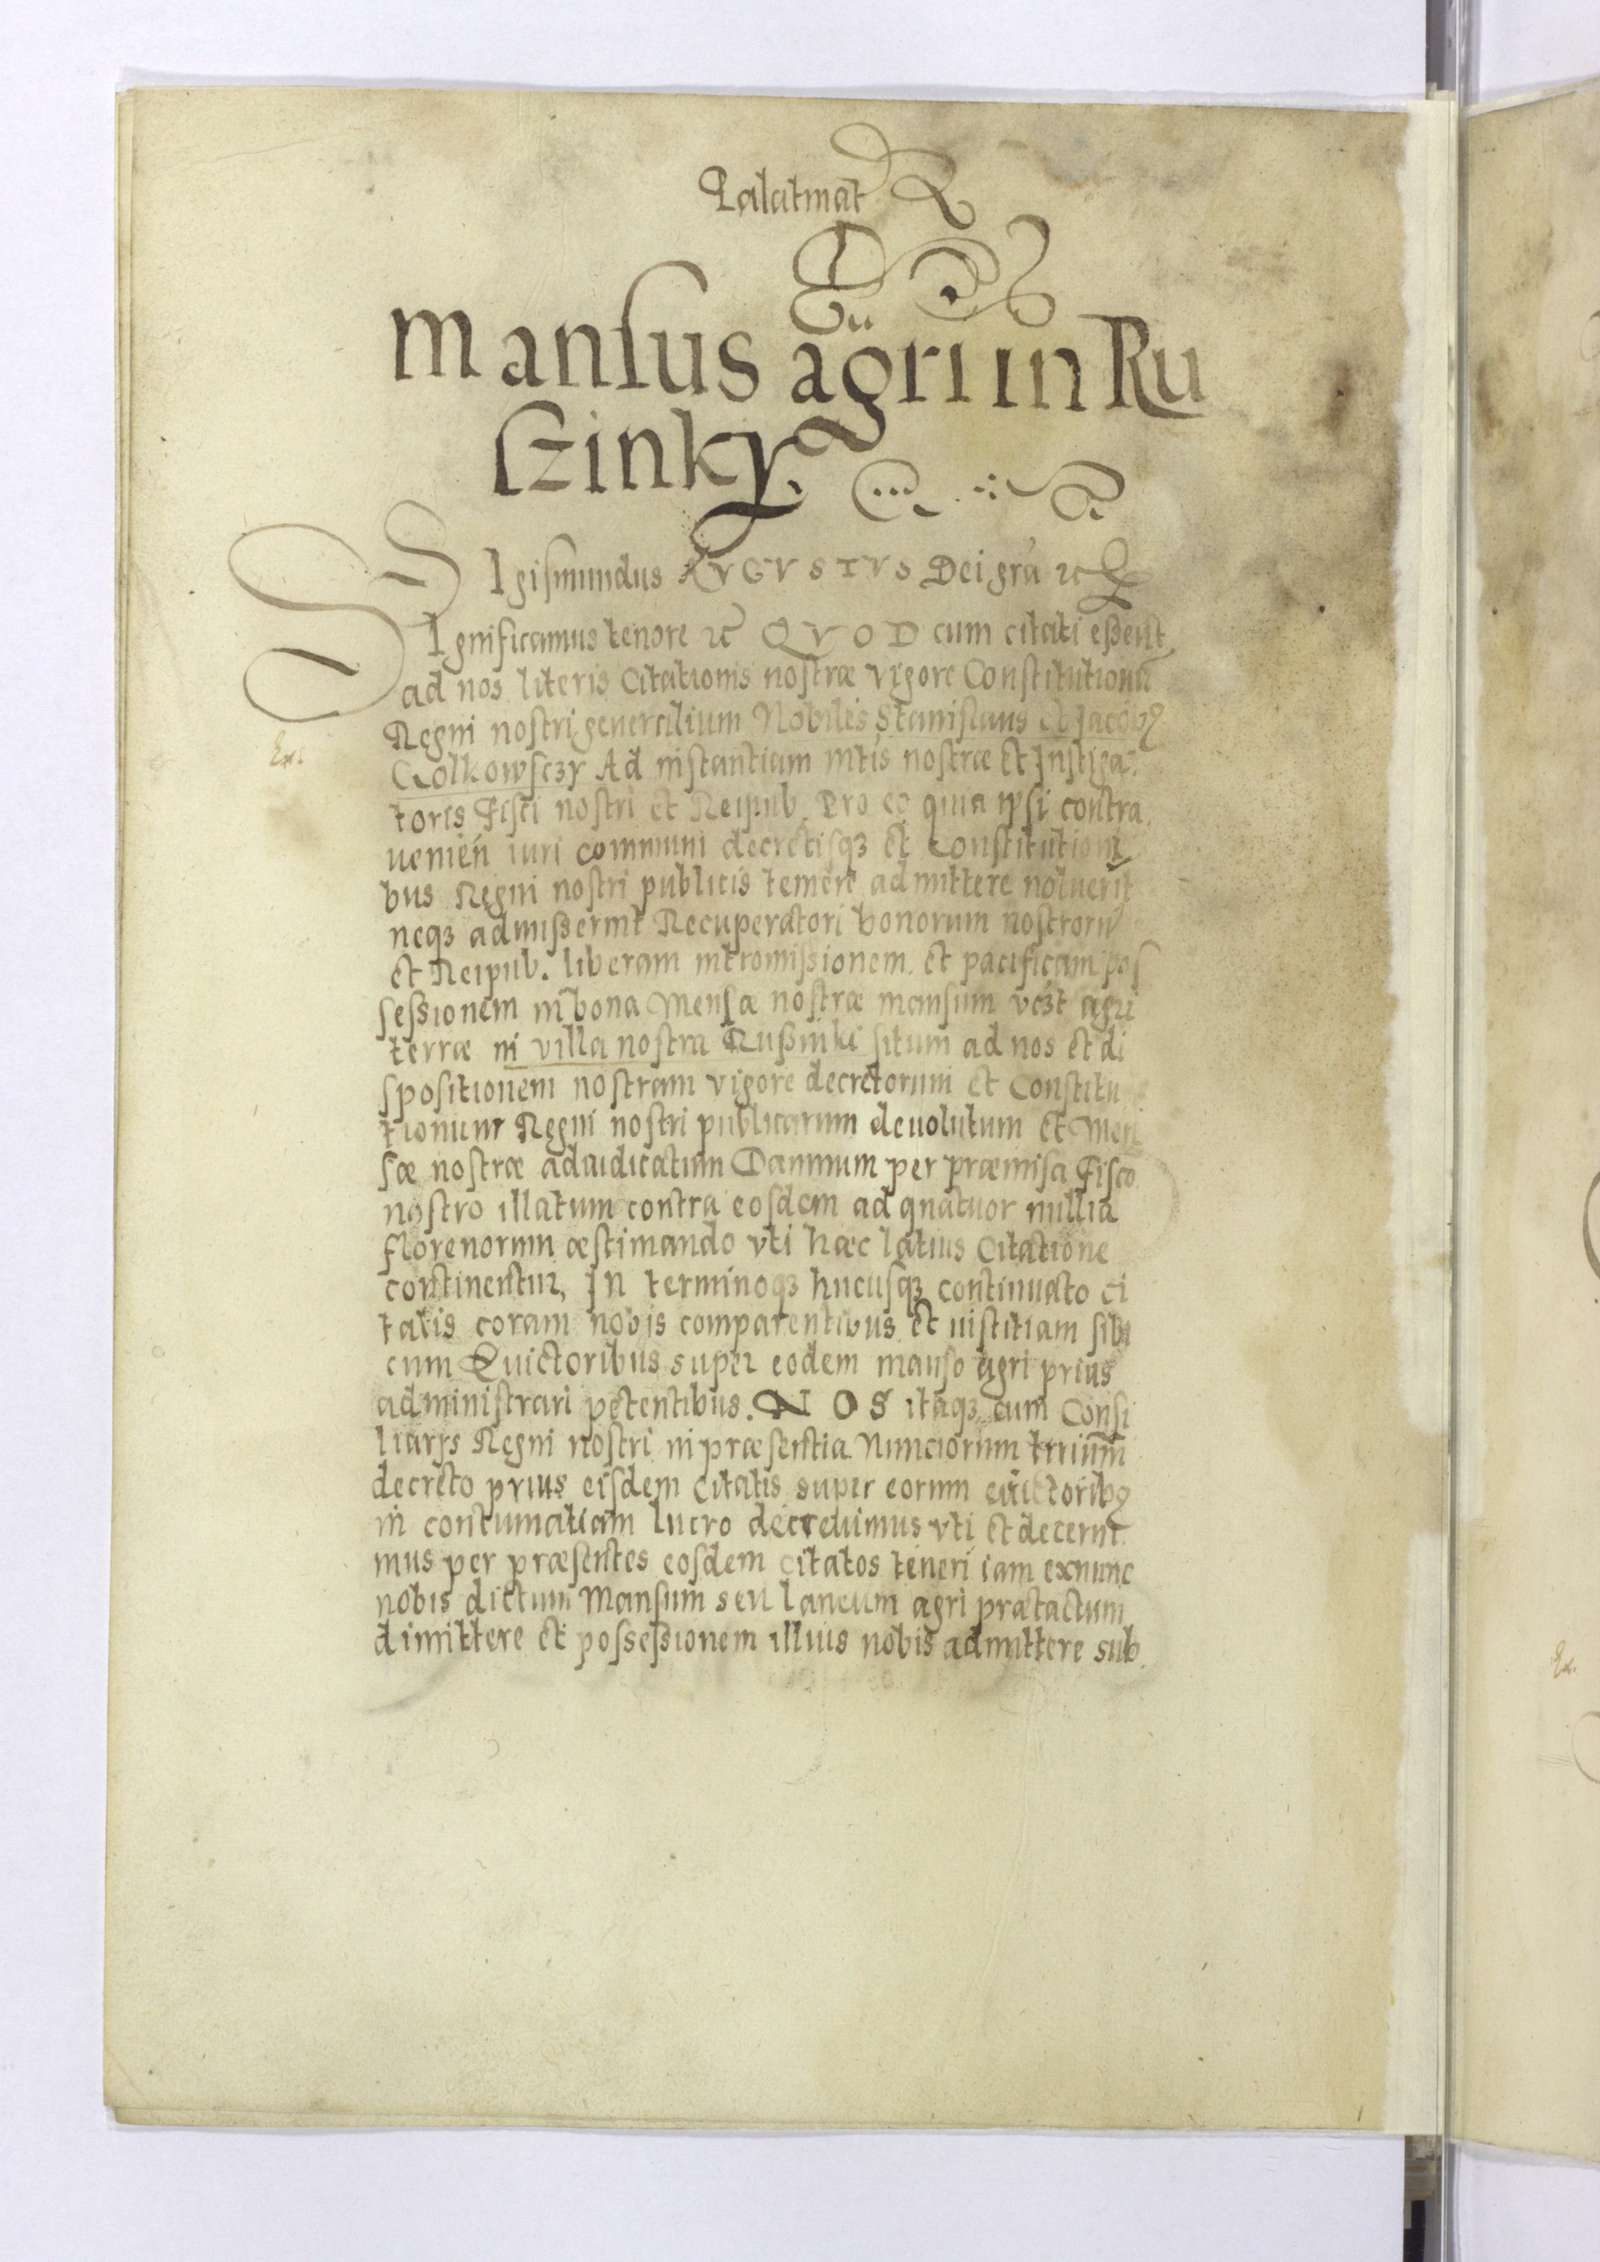 Palatinat
Mansus agri in Ru
szinky.
SIgismundus AVGVSTVS Dei gra etc
SIgnificamus tenore etc QVOD cum citati eßent
ad nos literis Citationis nostræ vigore Constitutionũ
Regni nostri generalium Nobiles Stanislaus et Jacobꝰ
Ex.
Golkowsczy Ad instantiam Mtis nostræ et Instiga
toris Fisci nostri et Reipub. Pro eo quia ipsi contra
uenień iuri communi decretisqꝫ et Constitutioni
bus Regni nostri publicis temere admittere noluerit
neqꝫ admißerint Recuperatori bonorum nostrorũ
et Reipub. liberam intromißionem et pacificam pos
seßionem in bona Mensæ nostræ mansum agri
terræ in villa nostra Rußinki situm ad nos et di
spositionem nostram vigore decretorum et Constitu
tionum Regni nostri publicarum deuolutum et Men
sæ nostræ adiudicatum Damnum per præmisa Fisco
nostro illatum contra eosdem ad quatuor millia
florenorum æstimando vti hæc latius Citatione
continentur, In terminoqꝫ hucusqꝫ continuato ci
tatis coram nobis comparentibus et iustitiam sibi
cum Euictoribus super eodem manso agri prius
administrari petentibus. NOS itaqꝫ cum Consi
liarijs Regni nostri in præsentia Nunciorum trriũm
decreto prius eisdem Citatis super eorum euictoribꝰ
in contumatiam lucro decreuimus vti et decerni
mus per præsentes eosdem citatos teneri iam exnunc
nobis dictum Mansum seu laneum agri prætactum
dimittere et posseßionem illius nobis admittere sub
Ex.